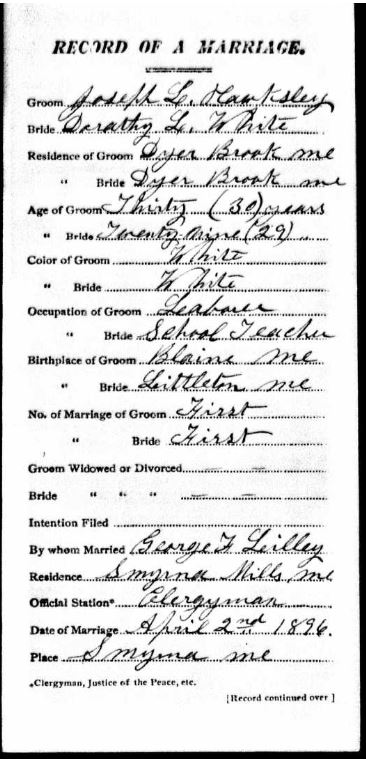 RECORD OF A MARRIAGE.
Groom Joseph L. Hawksley
Bride Dorathy L. White
Residence of Groom Dyer Brook me
" Bride Dyer Brook me
Age of Groom Thirty (30) years
" Bride Twenty nine (29) "
Color of Groom White
" Bride White
Occupation of Groom Leabourer
" Bride School Teacher
Birthplace of Groom Blaine Me
" Bride Littleton Me
No. of Marriage of Groom First
" Bride First
Groom Widowed or Divorced — —
Bride " " " — —
Intention Filed
By whom Married George F Leilley
Residence Smyrna Mills, me
Official Station* Clergyman
Date of Marriage April 2nd 1896.
Place Smyrna me
*Clergyman, Justice of the Peace, etc.
[Record continued over]